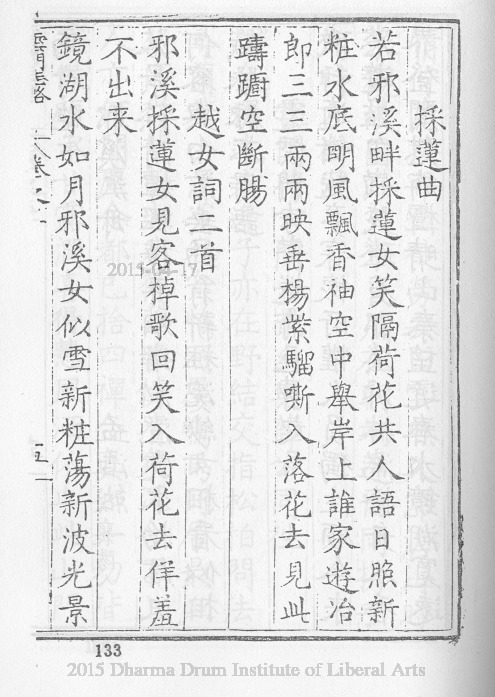 採蓮曲
若邪溪畔採蓮女笑隔荷花共人語日照新
粧水底明風飄香袖空中舉岸上誰家遊冶
郎三三兩兩映垂楊紫騮嘶入落花去見此
躊躕空斷腸
越女詞二首
邪溪採蓮女見客棹歌回笑入荷花去佯羞
不出来
鏡湖水如月邪溪女似雪新粧蕩新波光景
卷之
五
133
2015-04-17
2015 Dharma Drum Institute of Liberal Arts